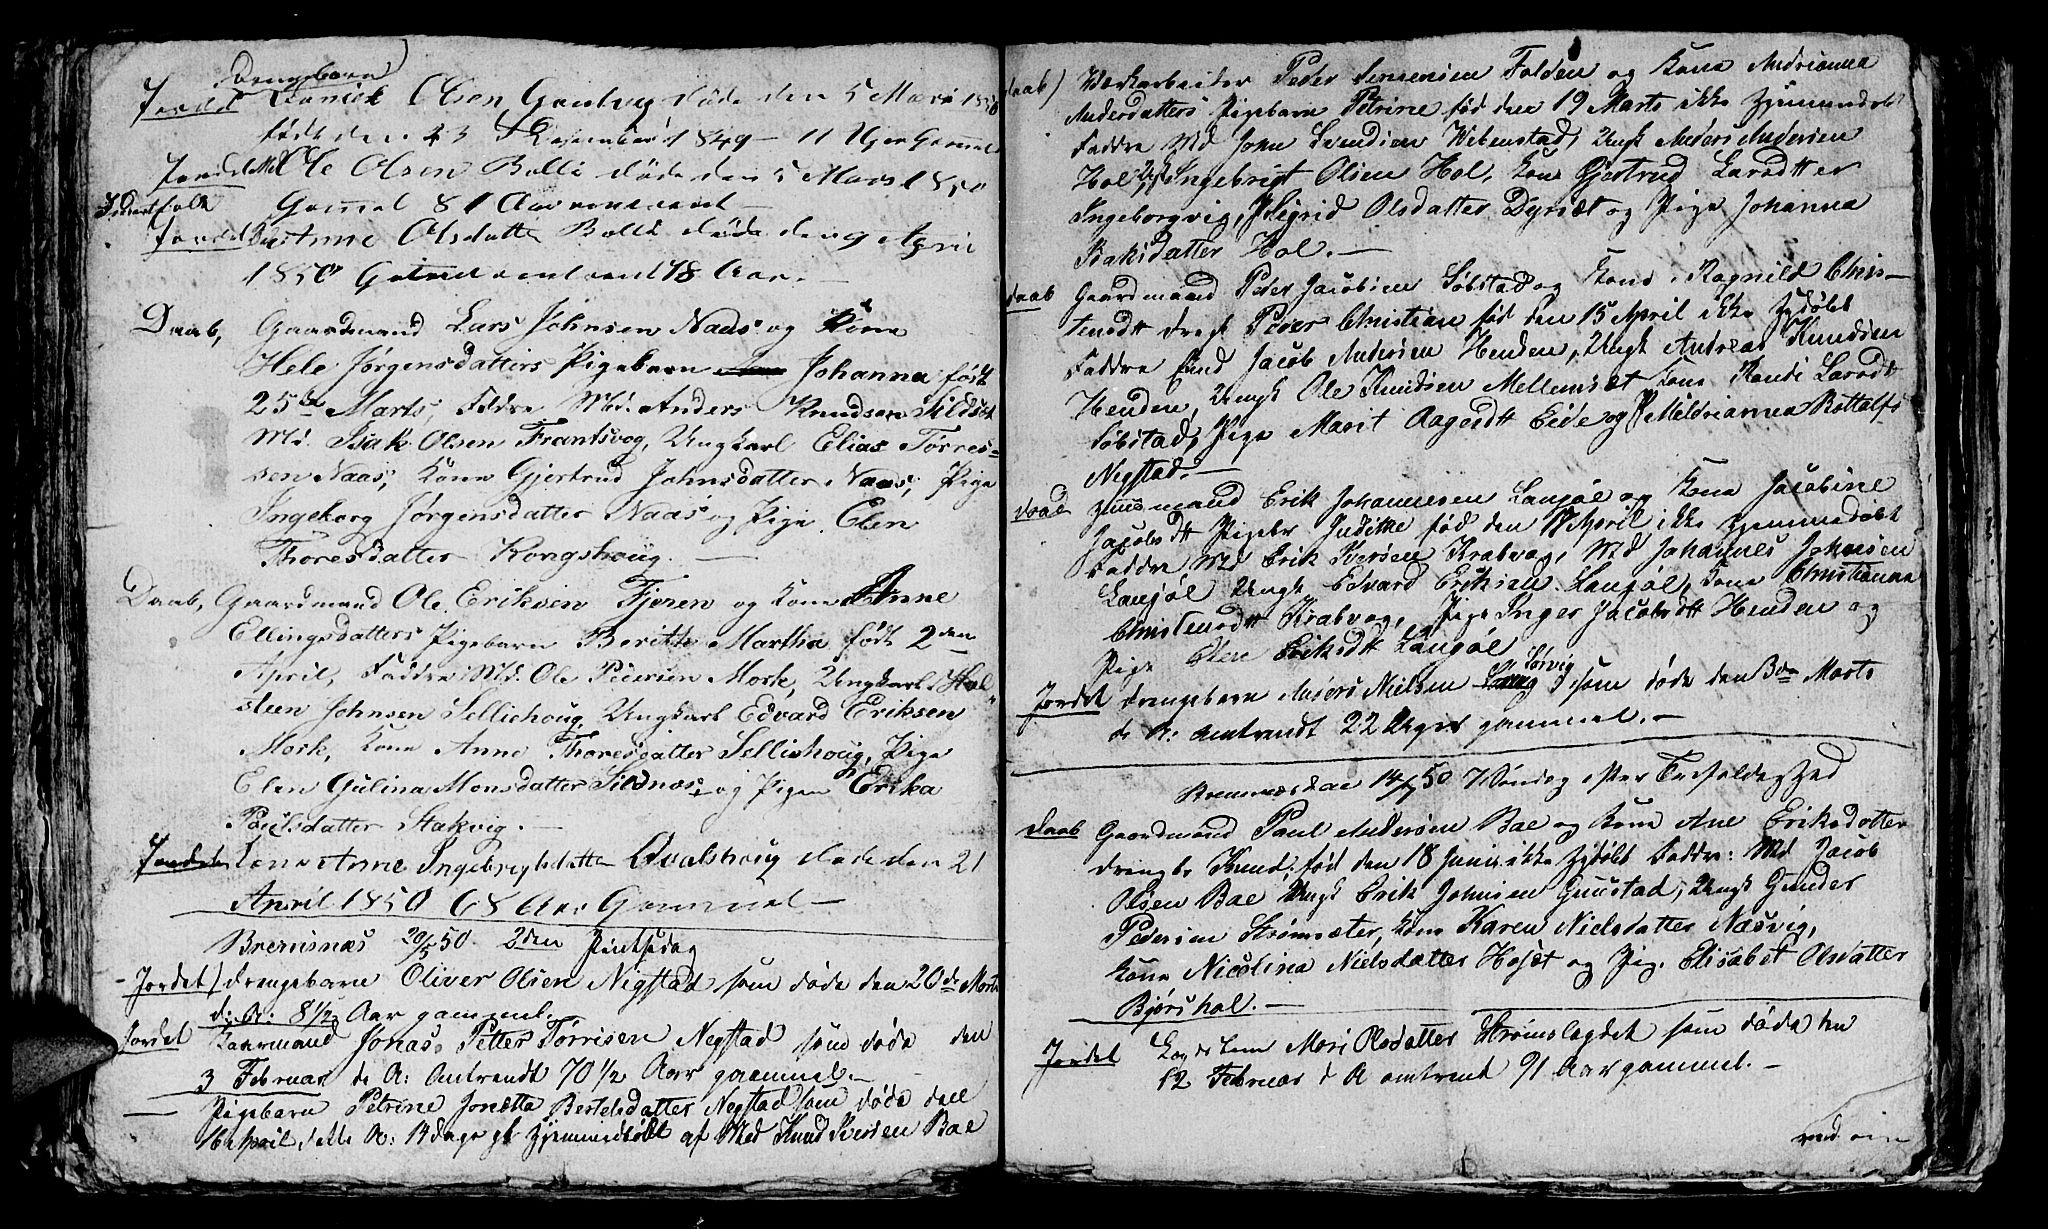 Drengebarn
Jordet Daniel Olsen døde den 5 Mars 1850
født den 23 Desember 1849 – 11 Uger Gammel
Jordet Md Ole Olsen Bolli døde den 5 Mars 1850
Gammel 81 Aar omtrent –
Jordet Anne Olsdatter Bolli døde den 9 April
1850 Gammel omtrent 78 Aar. –
Daab, Gaardmand Lars Johnsen Naas og Kone
Hele Jørgensdatters Pigebarn Johanna født
25de Marts, Fadre Md. Anders Knudsen Sildset
Md. Isak Olsen Frantsvog, Ungkarl Elias Torres=
sen Naas, Kone Gjertrud Johnsdatter Naas, Pige
Ingeborg Jørgensdatter Naas og Pige Elen
Thoresdatter Kongshoug. –
Daab, Gaardmand Ole Eriksen Fjeren og Kone Anne
Ellingsdatters Pigebarn Berithe Martha født 2den
April, Faddre Md. Ole Pedersen Mork, Ungkarl
steen Johnsen Selliehoug, Ungkarl Edvard Eriksen
Mork, Kone Anne Thoresdatter Selliehoug, Pige
Elen Gulina Monsdatter Sildnes og Pigen Erika
Poulsdatter Stakvig. –
Jordet Kone Anne Ingebrigtsdatter Qvalshoug døde den 21
April 1850 68 Aar Gammel –
Bremsnæs 20/5 50 2den Pintsedag
Jordet) Drengebarn Oliver Olsen Nigstad som døde den 20de Marts
d: A: 8 1/2 Aar gammel.
Jordet Kaarmand Jonas Petter Torrisen Negstad som døde den
3 Februar de A: omtrendt 70 1/2 Aar gammel. –
Pigebarn Petrine Jonetta Bertelsdatter Negstad som døde den
16 April dette A: 14 dage gl hjemmedøbt af Md Knud Iversen Bae
Daab) Værkarbeiter Peder Jensensen Folden og Kone Andrianna
Andersdatters Pigebarn Petrine fød den 19 Marts ikke hjemmedøbt
Faddre Md John Svendsen Vebenstad, Ungk Anders Andersen
Hol, Ungk Ingebrigt Olsen Hol, Kone Gjertrud Larsdtter
Ingeborgvig, P. Sigrid Olsdatter Dyrset og Pige Johanna
Isaksdatter Hol. –
Daab Gaardmand Peder Jacobsen Søbstad og Kone Ragnild Chris–
tensdtt dreg. Peder Christian fød den 15 April ikke hjdøbt
Faddre Jacob Andersen Henden, Ungk Andreas Knudsen
Henden, Ungk Ole Knudsen Mellemsæt Kone Randi Larsdtt
Søbstad, Pige Marit Aagesdtt Eide og P. Mildrianna Rottolfs
Negstad. –
Daab Huusmand Erik Johannesen Langøl og Kone Jacobine
Jacobsdtt Pigebr Judithe fød den April ikke hjemmedøbt
Faddre Md Erik Iversen Krabvog, Md Johannes Johnsen
Langøl Ungk Edvard Eriksen Langøl, Kone Christianna
Christensdtt Krabvog, Pige Inger Jacobsdtt Henden og
Pige Elen Eriksdtt Langøl
Sørvig
Jordet drengebarn Anders Nielsen som døde den 3de Marts
de A: omtrendt 22 Uger gammel. –
Bremsnæs den 14/7 50 7 Søndag efter Trefoldighed
Daab Gaardmand Paul Andersen Bae og Kone Ane Eriksdatter
drengbr Knud, fød den 18 Juni ikke hjdøbt Faddre: Md Jacob
Olsen Bae Ungk Erik Johnsen Guustad, Ungk Gunder
Pedersen Strømsæter, Kone Karen Nielsdatter Næsvig,
Kone Nicolina Nielsdatter Hoset og Pig. Elisabet Olsdatter
Bjørshol. –
Jordet Mari Olsdatter Strømslægdet som døde den
12 Februar d A omtrent 91 Aar gammel. –